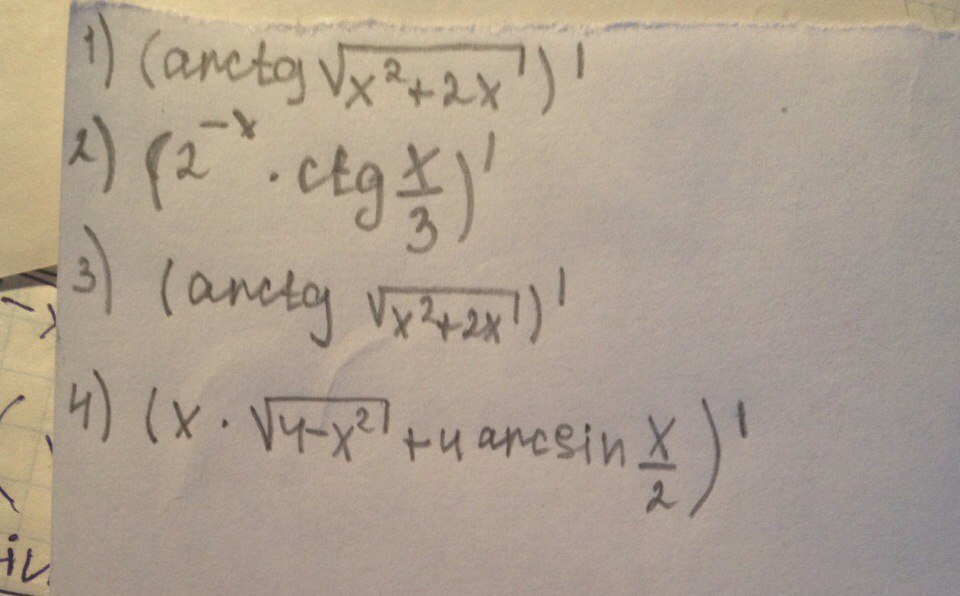 1) (arctg √(x²+2x))'
2) (2⁻ˣ · ctg x/3)'
3) (arctg √(x²+2x))'
4) (x · √(4-x²) + 4 arcsin x/2)'